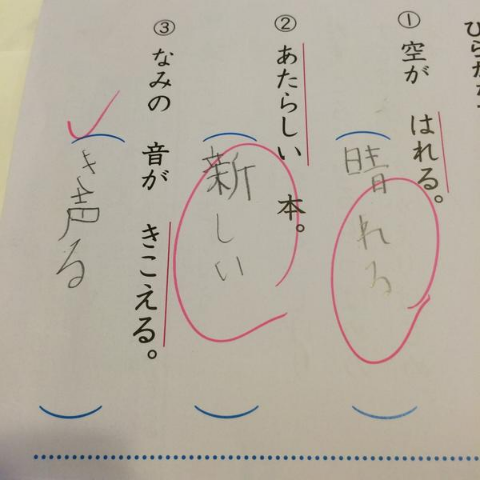 ① 空が はれる。
晴れる
② あたらしい 本。
新しい
③ なみの 音が きこえる。
き声る